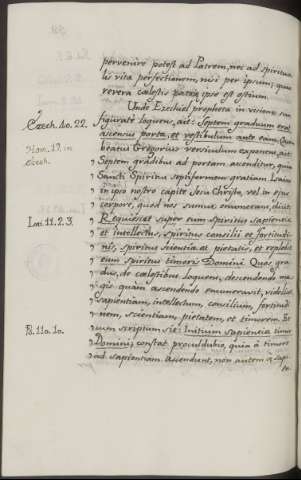 pervenire potest ad Patrem, nec ad spiritua
lis vitæ perfectionem, nisi per ipsum; quia
revera cælestis patriæ ipse est ostium.
Unde Ezechiel propheta in visione sua
figuraté loquens, ait: Septem graduum erat
Ezech. 40. 22.
ascensus portæ, et vestibulum ante eam. Quem
beatus Gregorius versiculum exponens, ait:
Hom. 17. in
Ezech.
Septem gradibus ad portam ascenditur, quia
Sancti Spiritus septiformem gratiam Isaias
in ipso nostro capite Jesu Christo, vel in ejus
corpore, quod nos sumus, enumerans, dicit:
Isai. 11. 2. 3.
Requiescet super eum spiritus sapientiæ
et intellectus, spiritus consilii et fortitudi
nis, spiritus scientiæ et pietatis, et replebit
eum spiritus timoris Domini. Quos gra
dus, de cælestibus loquens, descendendo ma
gis quàm ascendendo enumeravit, videlicet
sapientiam, intellectum, consilium, fortitudi
nem, scientiam, pietatem, et timorem. Et
Ps. 110. 10.
cum scriptum sit: Initium sapientiæ timor
Domini, constat proculdubio, quia à timore
ad sapientiam ascendunt, non autem à sapi-